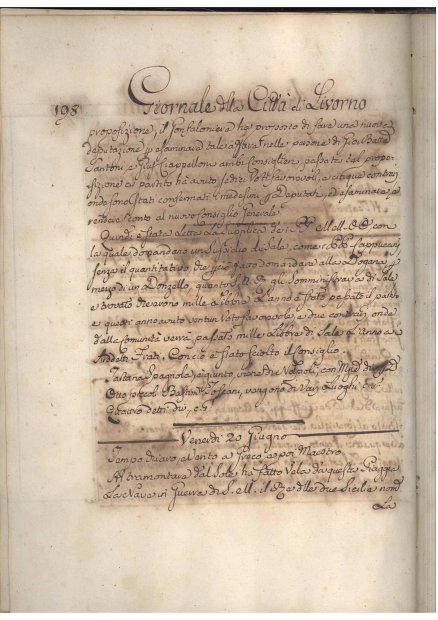 198
Giornale della Città di Livorno
proposizione, il Gonfaloniere ha proposto di fare una nuova
deputazione p esaminare tale affare nelle persone di Giov. Batta
Santoni, e Cappellano ambi Consiglieri, passata tal propo-
sizione a partito hà avuto sedici Voti favorevoli, e cinque contrarj
onde sono stati confermati i medesimi p Deputati, ed esaminare, e
renderne conto al nuovo Consiglio Generale
Quindi è stata Letta La Supplica dei con
la quale domandano un sussidio di Sale, come i Cappuccini
senza il quantitativo
mezzo di un Donzello, quanto gli somministrava di Sale
e trovato che erono mille Libbre L'anno è stato passato il partito
e questi anno avuto venti un Voto favorevole, e due contrarj, onde
dalla Comunità verrà passato mille Libbre di Sale L'anno a
Suddetti Frati. Con ciò è stato sciolto il Consiglio
Tartana Spagnola è giunto, viene di Napoli, con
Otto piccoli Bastimti Toscani, vengono di Varj Luoghi
Quattro detti
Venerdì 20 Giugno
Tempo Vento a Greco e poi Maestro
Al tramontare del Sole hà fatto Vela da queste Spiagge
La Nave in Guerra di S. M. il Re delle due Sicilie nomta
La